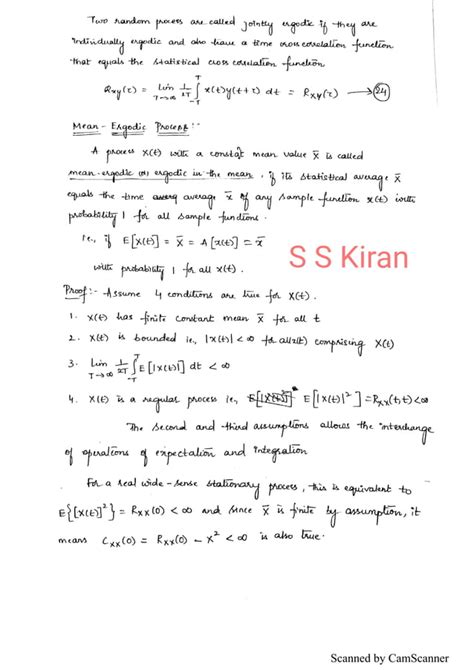 Two random process are called jointly ergodic if they are
individually ergodic and also have a time cross correlation function
that equals the statistical cross correlation function
Rxy(τ) = lim T→∞ 1/2T ∫_{-T}^{T} x(t)y(t+τ) dt = RXY(τ) → 24
Mean - Ergodic Process :-
A process X(t) with a constat mean value X̄ is called
mean-ergodic (or) ergodic in the mean, if its statistical average X̄
equals the time averg average x̄ of any sample function x(t) with
probability 1 for all sample functions.
i.e., if E[X(t)] = X̄ = A[x(t)] = x̄
S S Kiran
with probability 1 for all x(t).
Proof :- Assume 4 conditions are true for X(t).
1. X(t) has finite constant mean X̄ for all t
2. X(t) is bounded i.e., |x(t)| < ∞ for all x(t) comprising X(t)
3. lim T→∞ 1/2T ∫_{-T}^{T} E[|X(t)|] dt < ∞
4. X(t) is a regular process i.e., E[|X(t)|²] = RXX(t,t) < ∞
The second and third assumptions allows the interchange
of operations of expectation and integration
For a real wide-sense stationary process, this is equivalent to
E{[X(t)]²} = RXX(0) < ∞ and since X̄ is finite by assumption, it
means CXX(0) = RXX(0) - X² < ∞ is also true.
Scanned by CamScanner